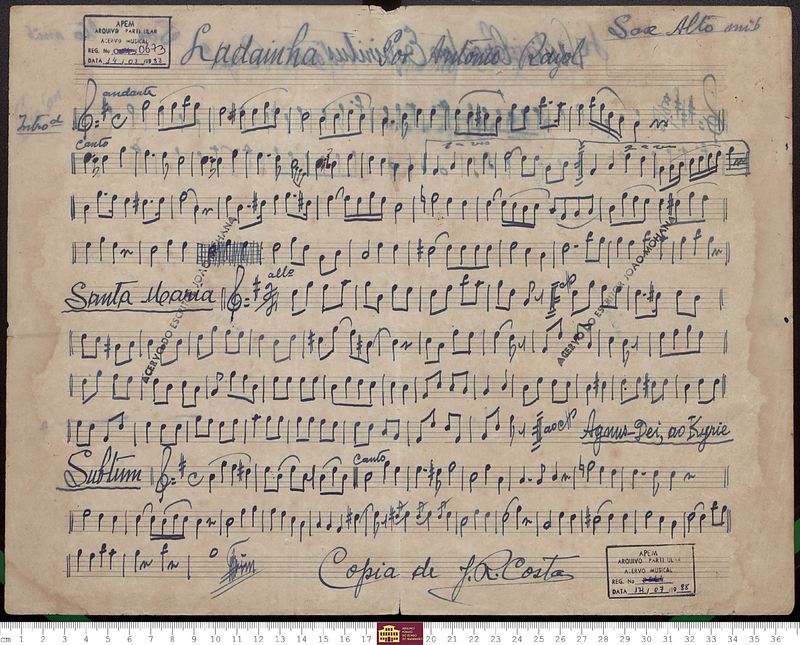 APEM
ARQUIVO PARTICULAR
ACERVO MUSICAL
REG. No 0673
DATA 14 / 07 / 1988
Ladainha Por Antonio Rayol
Sax Alto mib
andante
Introd
Canto
1ª vez
2ª vez
ACERVO DO ESCRITOR JOÃO MOHANA
ACERVO DO ESCRITOR JOÃO MOHANA
Santa Maria
allº
ao
Agnus Dei, ao Kyrie
Subtum
Canto
Fim
Copia de J.R. Costa
APEM
ARQUIVO PARTICULAR
ACERVO MUSICAL
REG. No
DATA 14 / 07 / 1988
cm 1 2 3 4 5 6 7 8 9 10 11 12 13 14 15 16 17 20 21 22 23 24 25 26 27 28 29 30 31 32 33 34 35 36